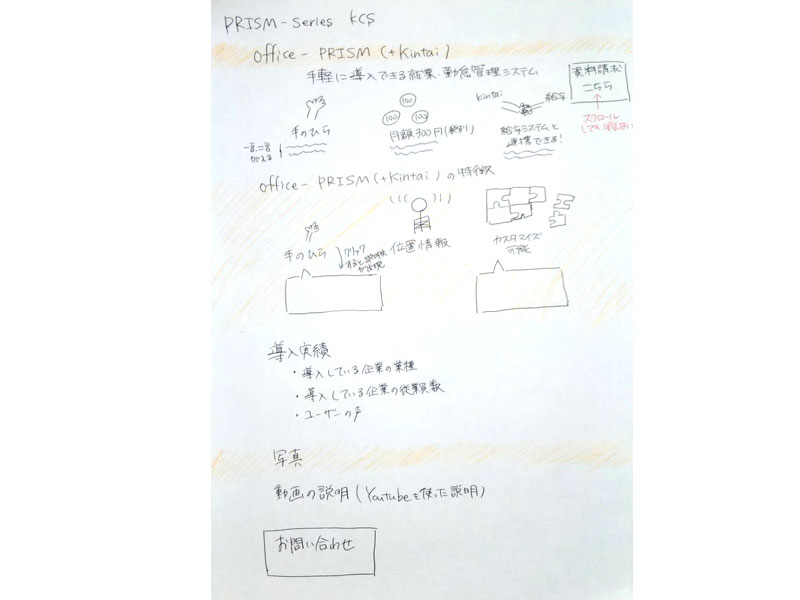 PRISM-Series KCS
office-PRISM(+Kintai)
手軽に導入できる就業・勤怠管理システム
資料請求
こちら
スクロール
しても消えない
手のひら
一言二言
加える
100
100
100
月額300円(税別)
Kintai
給与
給与システムと
連携できる!
office-PRISM(+Kintai)の特徴
手のひら
クリック
すると説明
が出現
位置情報
カスタマイズ
可能
導入実績
・導入している企業の業種
・導入している企業の従業員数
・ユーザーの声
写真
動画の説明(Youtubeを使った説明)
お問い合わせ